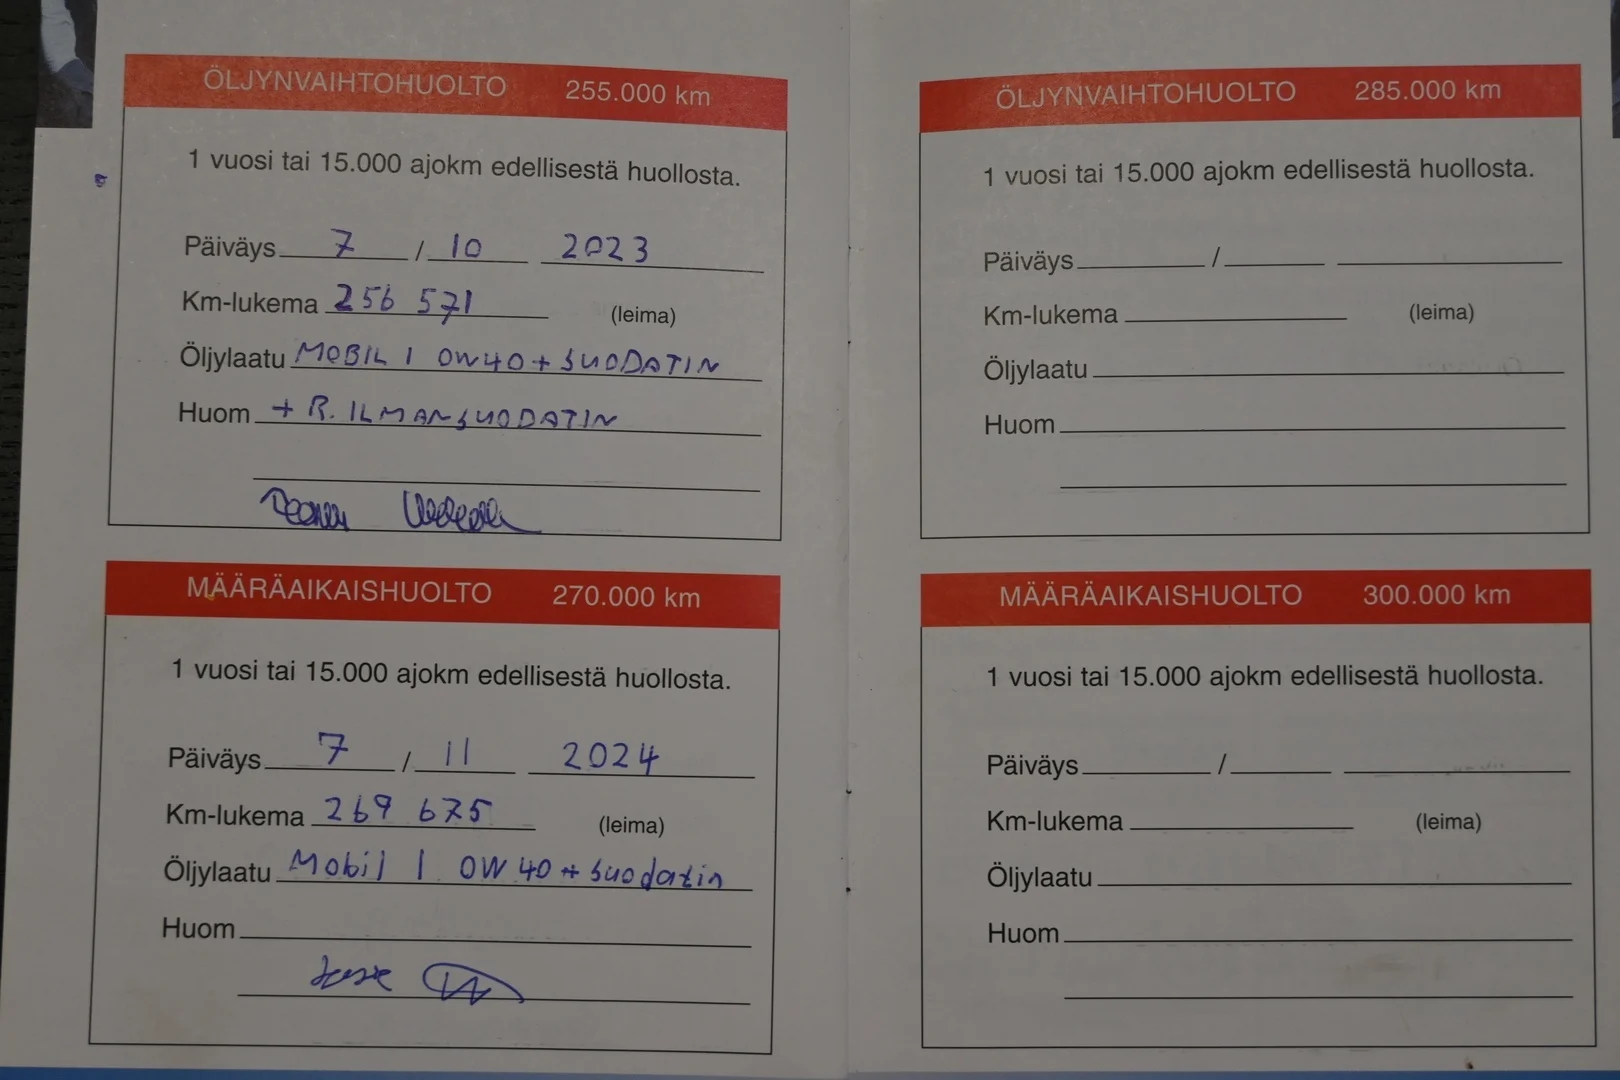 ÖLJYNVAIHTOHUOLTO 255.000 km
1 vuosi tai 15.000 ajokm edellisestä huollosta.
Päiväys 7 / 10 2023
Km-lukema 256 571 (leima)
Öljylaatu MOBIL 1 0W40 + SUODATIN
Huom + R. ILMANSUODATIN
MÄÄRÄAIKAISHUOLTO 270.000 km
1 vuosi tai 15.000 ajokm edellisestä huollosta.
Päiväys 7 / 11 2024
Km-lukema 269 675 (leima)
Öljylaatu Mobil 1 0W40 + suodatin
Huom
ÖLJYNVAIHTOHUOLTO 285.000 km
1 vuosi tai 15.000 ajokm edellisestä huollosta.
Päiväys /
Km-lukema (leima)
Öljylaatu
Huom
MÄÄRÄAIKAISHUOLTO 300.000 km
1 vuosi tai 15.000 ajokm edellisestä huollosta.
Päiväys /
Km-lukema (leima)
Öljylaatu
Huom